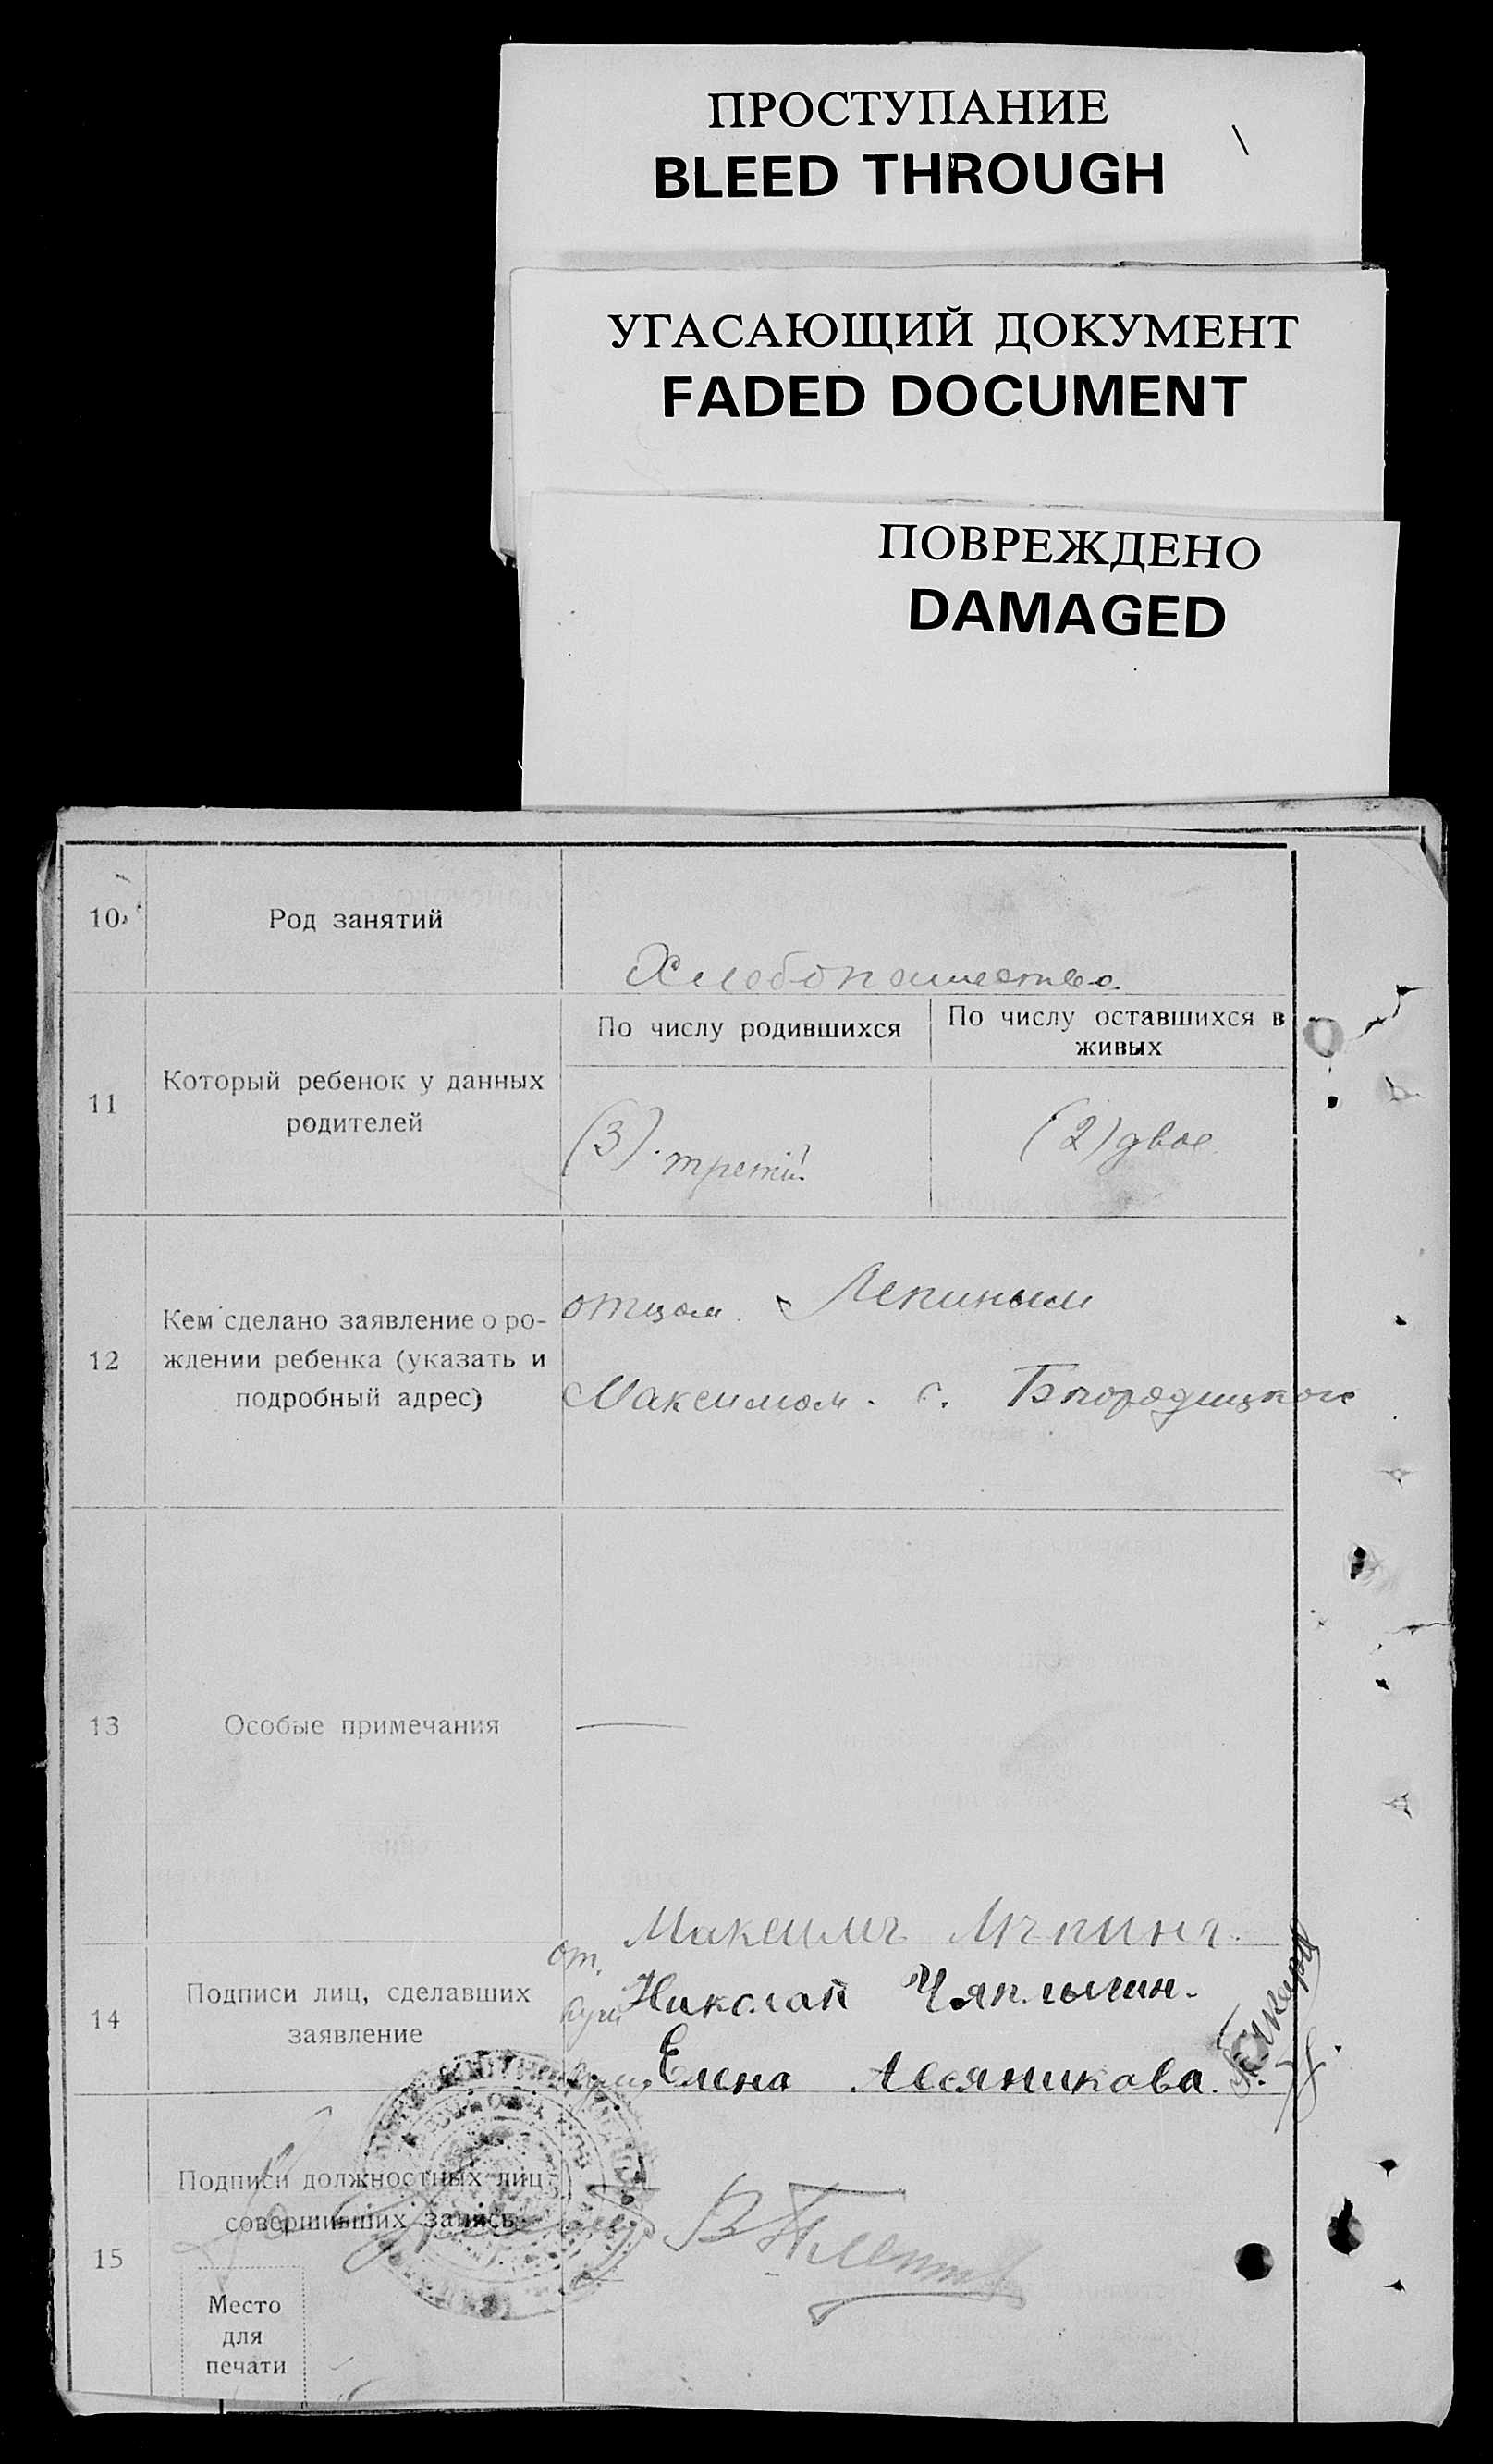 ПРОСТУПАНИЕ
BLEED THROUGH
УГАСАЮЩИЙ ДОКУМЕНТ
FADED DOCUMENT
ПОВРЕЖДЕНО
DAMAGED
10
Род занятий
Хлебопашество.
11
Который ребенок у данных
родителей
По числу родившихся
По числу оставшихся в
живых
(3). третий
(2) двое
12
Кем сделано заявление о ро-
ждении ребенка (указать и
подробный адрес)
отцом Лепиным
Максимом. с.
13
Особые примечания
—
14
Подписи лиц, сделавших
заявление
от.
Максимъ
Николай Чаплыгин.
Елена
15
Подписи должностных лиц
совершивших запись
Место
для
печати